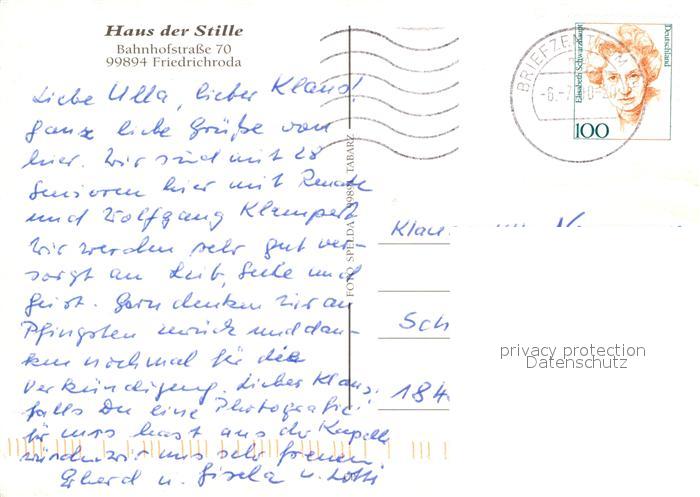 Haus der Stille
Bahnhofstraße 70
99894 Friedrichroda
Liebe Ulla, lieber Klaus!
ganz liebe Grüße von
hier. Wir sind mit 28
Senioren hier mit Renate
und Wolfgang Klampert
Wir werden sehr gut ver-
sorgt an Leib, Seele und
Geist. Gern denken wir an
Pfingsten zurück und dan-
ken nochmal für die
Verkündigung. Lieber Klaus,
falls Du eine Photografie
für uns hast aus der Kapelle
würden wir uns sehr freuen
Erhard u. Gisela u. Lotti
FOTO SPELDA 99891 TABARZ
BRIEFZENTRUM
-6.-7
Elisabeth Schwarzhaupt
Deutschland
100
Klau
Sch
184
privacy protection
Datenschutz